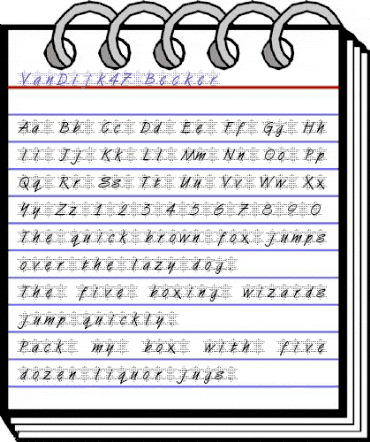 VanDijk47 Becker
Aa Bb Cc Dd Ee Ff Gg Hh
Ii Jj Kk Ll Mm Nn Oo Pp
Qq Rr Ss Tt Uu Vv Ww Xx
Yy Zz 1 2 3 4 5 6 7 8 9 0
The quick brown fox jumps
over the lazy dog.
The five boxing wizards
jump quickly.
Pack my box with five
dozen liquor jugs.